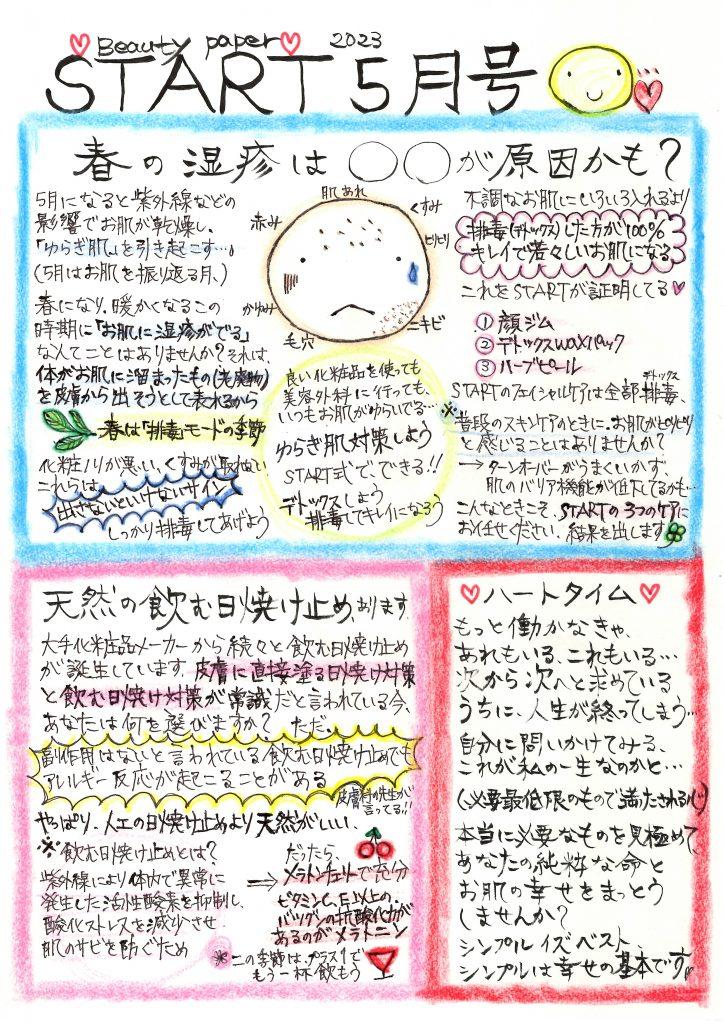 Beauty paper 2023
START 5月号
春の湿疹は ○○が原因かも?
5月になると紫外線などの
影響でお肌が乾燥し、
「ゆらぎ肌」を引き起こす…。
(5月はお肌を振り返る月。)
春になり、暖かくなるこの
時期に「お肌に湿疹がでる」
なんてことはありませんか?それは、
体がお肌に溜まったもの(老廃物)
を皮膚から出そうとして表れるから
春は「排毒」モードの季節
化粧ノリが悪い、くすみが取れない
これらは、
出さないといけないサイン
しっかり排毒してあげよう
肌あれ
赤み
くすみ
ヒリヒリ
かゆみ
毛穴
ニキビ
良い化粧品を使っても
美容外科に行っても、
いつもお肌がゆらいでる…
ゆらぎ肌対策しよう
START式で、できる!!
デトックスしよう
排毒してキレイになろう
不調なお肌にいろいろ入れるより
排毒(デトックス)した方が100%
キレイで若々しいお肌になる
これをSTARTが証明してる
① 顔ジム
② デトックスwaxパック
③ ハーブピール
デトックス
STARTのフェイシャルケアは全部排毒、
※普段のスキンケアのときに、お肌がピリピリ
と感じることはありませんか?
→ ターンオーバーがうまくいかず、
肌のバリア機能が低下してるかも…
こんなときこそ、STARTの3つのケアに
お任せください、結果を出します
天然の飲む日焼け止め、あります。
大手化粧品メーカーから続々と飲む日焼け止め
が誕生しています。皮膚に直接塗る日焼け対策
と飲む日焼け対策が常識だと言われている今、
あなたは何を選びますか? ただ、
副作用はないと言われている飲む日焼け止めでも
アレルギー反応が起こることがある
皮膚科の先生が
言ってる!!
やっぱり、人工の日焼け止めより天然がいい、
※飲む日焼け止めとは?
紫外線により体内で異常に
発生した活性酸素を抑制し、
酸化ストレスを減少させ、
肌のサビを防ぐため
だったら、
⇒ メラトンチェリーで充分
ビタミンC、E以上の
バツグンの抗酸化力が
あるのがメラトニン
※この季節は、プラス1で
もう一杯飲もう
ハートタイム
もっと働かなきゃ、
あれもいる、これもいる…
次から次へと求めている
うちに、人生が終ってしまう…
自分に問いかけてみる、
これが私の一生なのかと…
(必要最低限のもので満たされる心)
本当に必要なものを見極めて、
あなたの純粋な命と
お肌の幸せをまっとう
しませんか?
シンプル イズ ベスト、
シンプルは幸せの基本です。